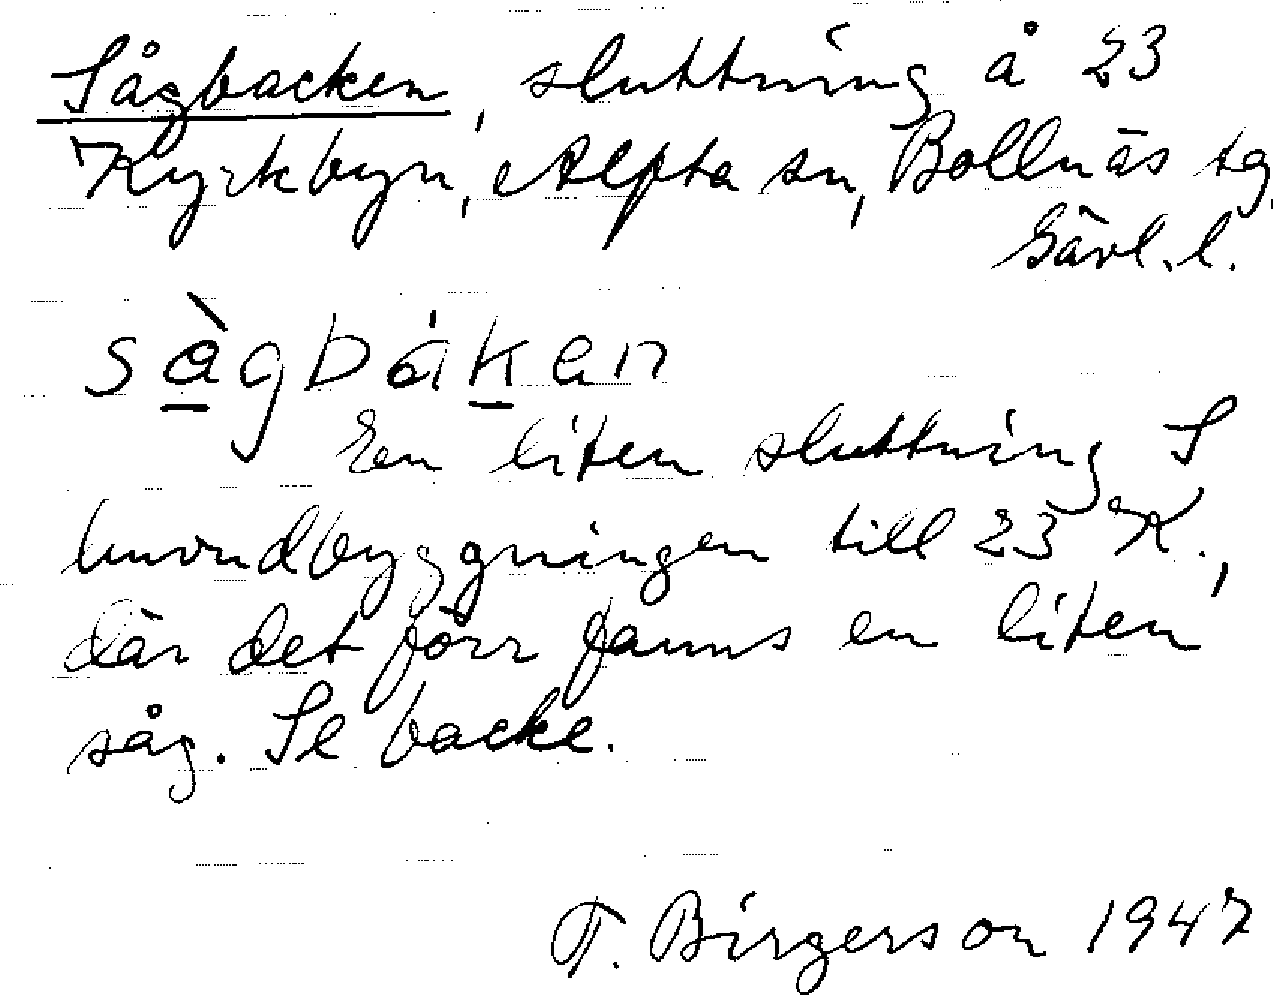 Sågbacken, sluttning å 23
Kyrkbyn, Alfta sn, Bollnäs tg,
Gävl. l.
sàgbákan
En liten sluttning S
huvudbyggningen till 23 K.,
där det förr fanns en liten
såg. Se backe.
T. Birgerson 1947